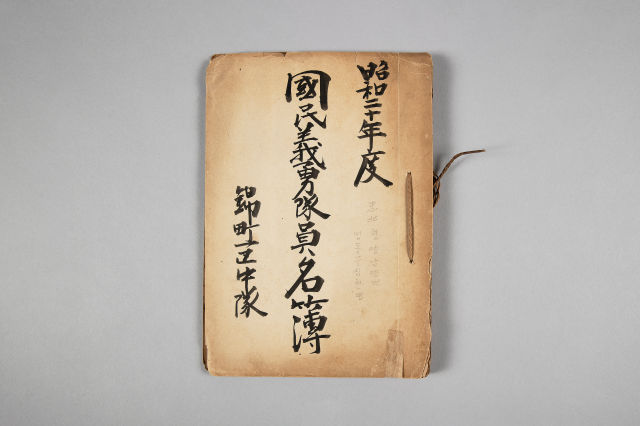 昭和二十年度
國民義勇隊員名簿
錦町一区中隊